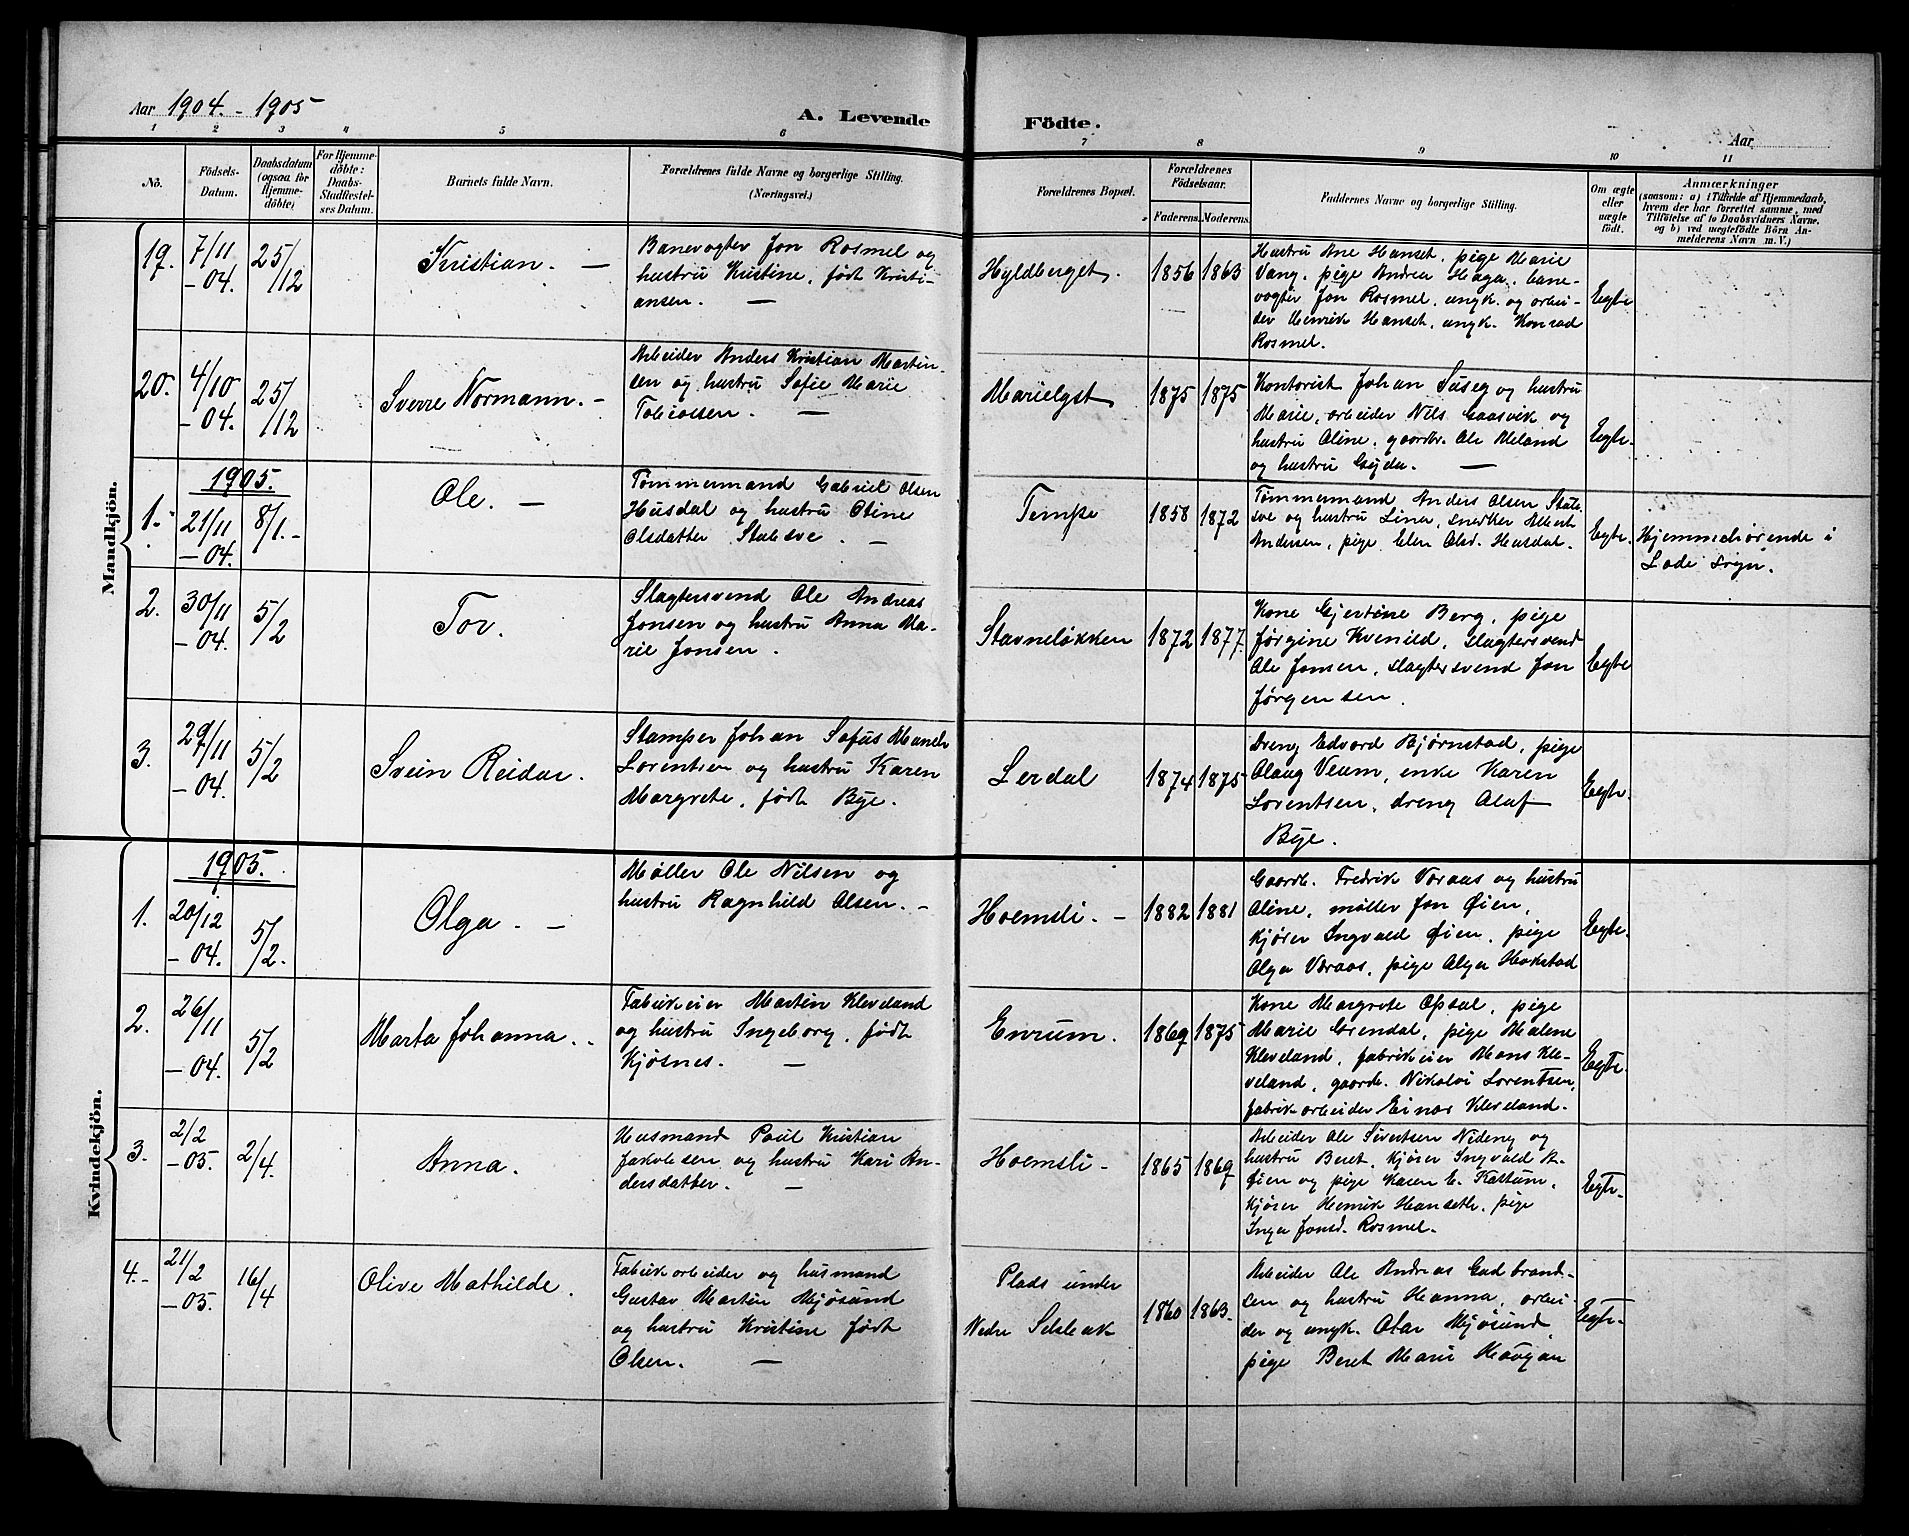 Aar 1904. - 1905
A. Levende Födte.
Aar
1 2 3 4 5 6 7 8 9 10 11
No.
Födsels-
Datum.
Daabsdatum
(ogsaa for
Hjemme-
döbte)
For Hjemme-
döbte:
Daabs-
Stadfæstel-
ses Datum.
Barnets fulde Navn.
Forældrenes fulde Navne og borgerlige Stilling.
(Næringsvei.)
Forældrenes Bopæl.
Forældrenes
Födselsaar.
Faderens. Moderens.
Faddernes Navne og borgerlige Stilling.
Om ægte
eller
uægte
födt.
Anmærkninger
(saasom: a) i Tilfælde af Hjemmedaab,
hvem der har forrettet samme, med
Tilföielse af to Daabsvidners Navne.
og b) ved uægtefödte Börn An-
melderens Navn m. V.)
Mandkjön.
19. 7/11 - 04. 25/12 Kristian. —
Banevogter Jon Rosmel og
hustru Kristine, født Kristi-
ansen. —
Hyldberget. 1856 1863
Hustru Ane Hanset, pige Marie
Vang, pige Andrea Haga, bane-
vogter Jon Rosmel, ungk. og arbei-
der Henrik Hanset, ungk. Konrad
Rosmel.
Egte
20. 4/10 - 04. 25/12 Sverre Normann. -
Arbeider Anders Kristian Martin-
sen og hustru Sofie Marie
Tobiassen. —
Marielyst 1875 1875
Kontorist Johan Suseg og hustru
Marie, arbeider Nils Gaasvik og
hustru Oline, gaardbr. Ole Meland
og hustru Gyda. —
Egte.
1905.
1. 21/11 - 04. 8/1. - Ole. —
Tømmermand Gabriel Olsen
Husdal og hustru Oline
Olsdatter Stalsve. —
Tempe 1858 1872
Tømmermand Anders Olsen Stals-
sve og hustru Lina, snedker Albert
Andersen, pige Elen Olsd. Husdal.
Egte.
Hjemmehørende i
Lade sogn.
2. 30/11 - 04. 5/2 Tor.
Slagtersvend Ole Andreas
Jonsen og hustru Anna Ma-
rie Jonsen.
Stavneløkken 1872 1877.
Kone Gjertine Berg, pige
Jørgine Kvenild, slagtersvend
Ole Jonsen, slagtersvend Jon
Jørgensen.
Egte
3. 29/11 - 04. 5/2 Svein Reidar.
Stamper Johan Sofus
Lorentsen og hustru Karen
Margrete, født Bye.
Lerdal 1874 1875
Dreng Edvard Bjørnstad, pige
Olaug Veum, enke Karen
Lorentsen, dreng Olaf
Bye.
Egte.
Kvindekjön.
1905.
1. 20/12 - 04. 5/2. Olga. —
Møller Ole Nilsen og
hustru Ragnhild Olsen. -
Hoemsli. - 1882 1881
Gaardb. Fredrik Væraas og hustru
Oline, møller Jon Øien,
kjører Ingvald Øien, pige
Olga Væraas, pige Olga Hokstad
Egte.
2. 26/11 - 04. 5/2 Marta Johanna. -
Fabrikeier Martin Kleveland
og hustru Ingeborg, født
Kjøsnes. —
Enrum. 1869 1875
Kone Margrete Opdal, pige
Marie Grendal, pige Malene
Kleveland, fabrikeier Mons Kle-
veland, gaardb. Nikolai Lorentsen,
fabrikarbeider Einar Kleveland.
Egte.
3. 2/2 - 05. 2/4. Anna.
Husmand Paul Kristian
Jakobsen og hustru Kari An-
dersdatter. —
Hoemsli - 1865 1869
Arbeider Ole Sivertsen Nideng og
hustru Beret, kjører Ingvald A.
Øien og pige Karen E. Kattum,
kjører Henrik Hanseth, pige
Inga Jonsd. Rosmel.
Egte.
4. - 21/2 - 05. 16/4 Olive Mathilde.
Fabrikarbeider og husmand
Gustav Martin Mjøsund
og hustru Kristine født
Olsen. —
Plads under
Nedre Selsbak 1860 1863.
Arbeider Ole Andreas Gudbrand-
sen og hustru Hanna, arbei-
der og ungk. Otar Mjøsund,
pige Beret Marie Haugan
Egte.